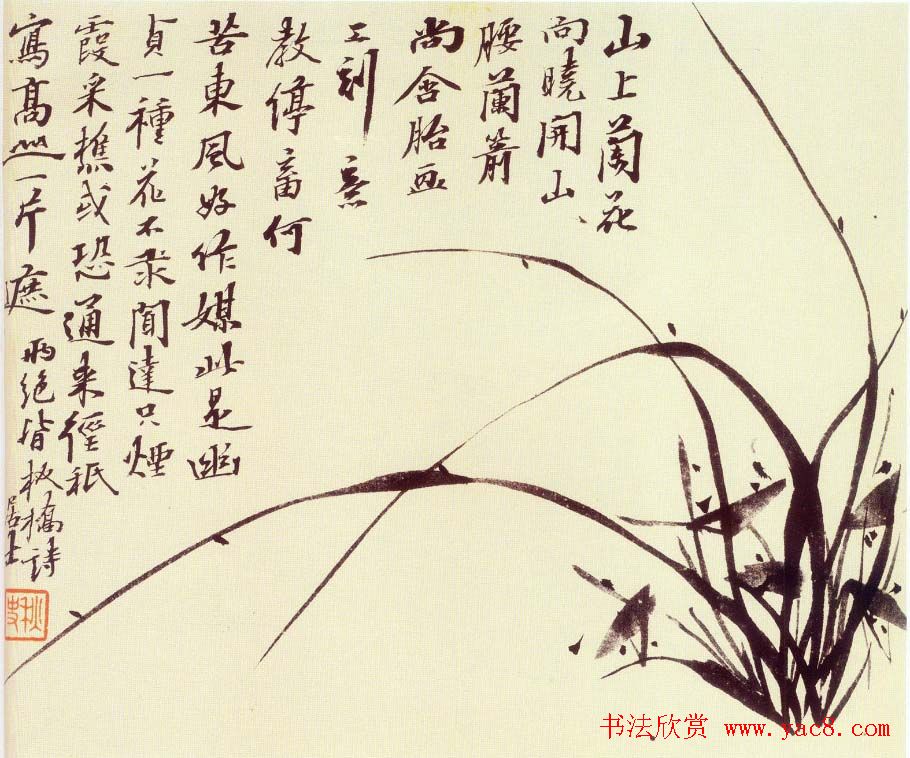 山上蘭花
向曉開山
腰蘭箭
尚含胎画
工刻意
教停畜何
苦東風好作媒此是幽
貞一種花不求聞達只煙
霞采樵或恐通来徑秖
寫高山一片遮 兩絕皆板橋詩
居士
秋史
书法欣赏 www.yac8.com